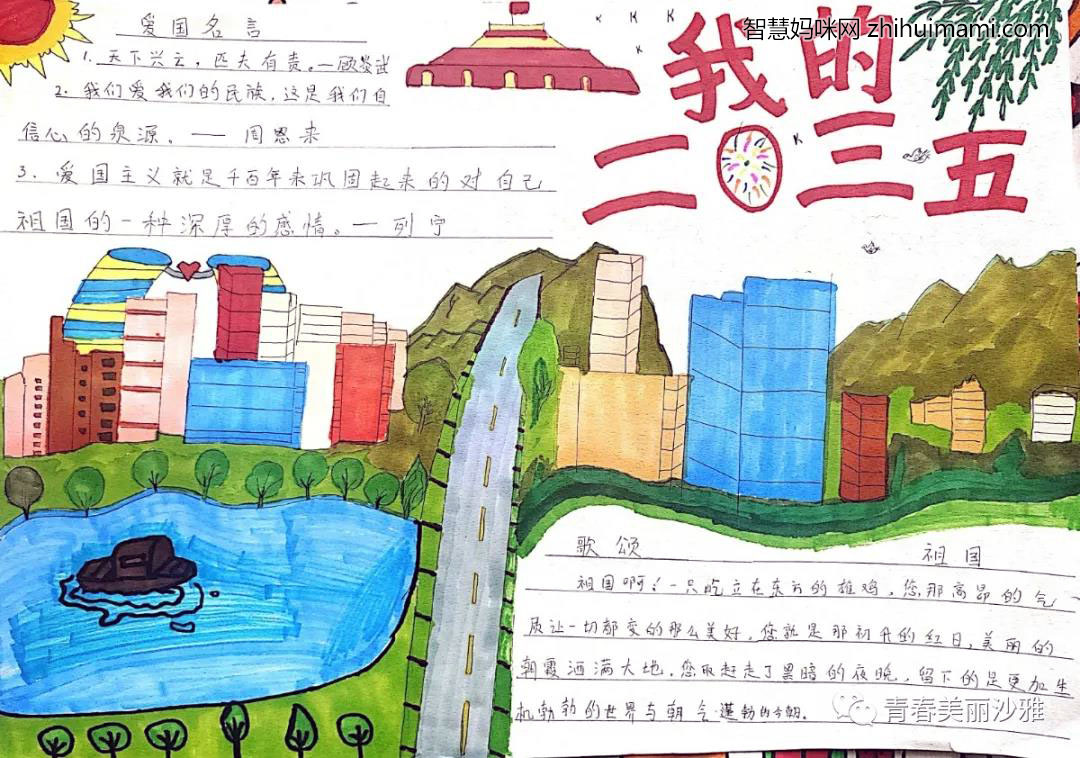 智慧妈咪网 zhihuimami.com
我的
二0三五
爱国名言
1. 天下兴亡，匹夫有责。—顾炎武
2. 我们爱我们的民族，这是我们自
信心的泉源。—— 周恩来
3. 爱国主义就是千百年来巩固起来的对自己
祖国的一种深厚的感情。—列宁
歌颂 祖国
祖国啊！一只屹立在东方的雄鸡，您那高昂的气
质让一切都变的那么美好，您就是那初升的红日，美丽的
朝霞洒满大地，您取赶走了黑暗的夜晚，留下的是更加生
机勃勃的世界与朝气蓬勃的今朝。
青春美丽沙雅